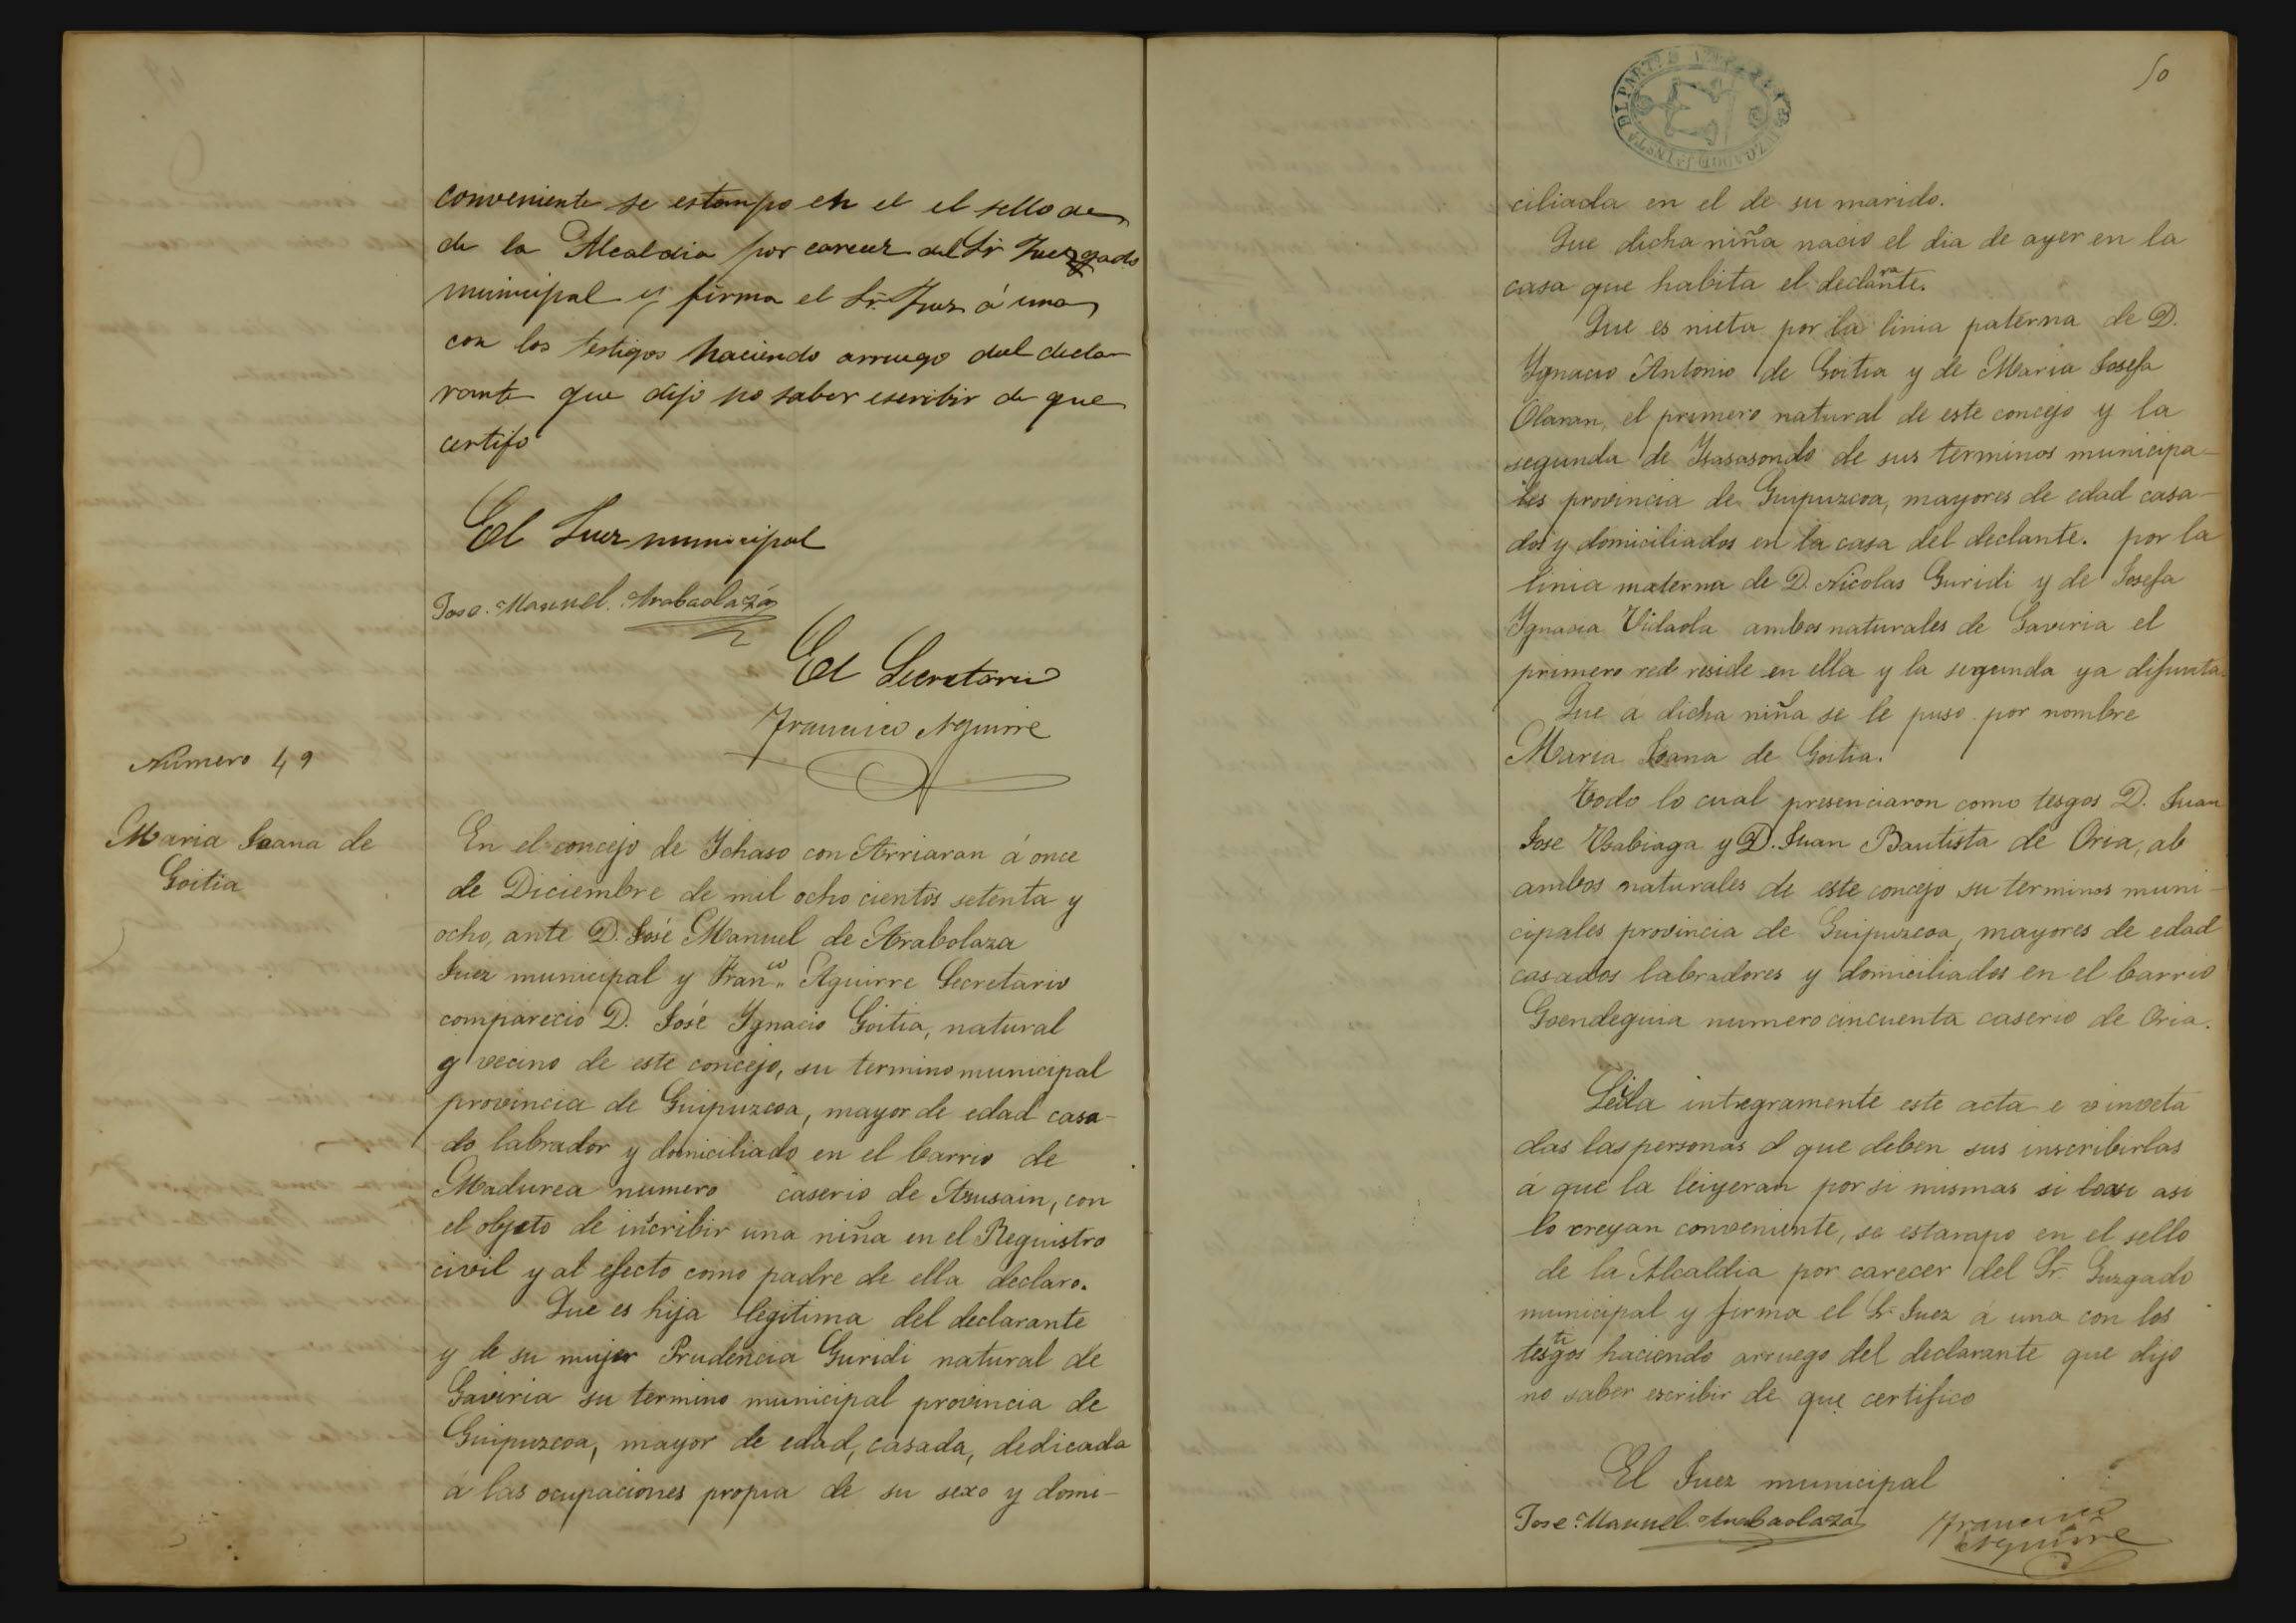 conveniente se estampo en el el sello de
de la Alcaldia por carecer del Sr Juezgado
municipal y firma el Sr. Juez á una
con los testigos haciendo arruego del decla
rante que dijo no saber escribir de que
certifo
El Juez municipal
Jose Manuel Arabaolaza
El Secretario
Francisco Aguirre
Número 49
Maria Joana de
Goitia
En el concejo de Ychaso con Arriaran á once
de Diciembre de mil ocho cientos setenta y
ocho, ante D. José Manuel de Arabolaza
Juez municipal y Franco Aguirre Secretario
comparecio D. José Ygnacio Goitia, natural
y vecino de este concejo, su termino municipal
provincia de Guipuzcoa, mayor de edad casa-
do labrador y domiciliado en el barrio de
Madurea numero caserio de Asusain, con
el objeto de inscribir una niña en el Reguistro
civil y al efecto como padre de ella declaro.
Que es hija legitima del declarante
y de su mujer Prudencia Guridi natural de
Gaviria su termino municipal provincia de
Guipuzcoa, mayor de edad, casada, dedicada
á las ocupaciones propia de su sexo y domi-
50
ciliada en el de su marido.
Que dicha niña nacio el dia de ayer en la
casa que habita el declarante.
Que es nieta por la linia paterna de D.
Ygnacio Antonio de Goitia y de Maria Josefa
Olaran, el primero natural de este concejo y la
segunda de Ysasasondo de sus terminos municipa-
les provincia de Guipuzcoa, mayores de edad casa-
dos y domiciliados en la casa del declante. por la
linia materna de D. Nicolas Guridi y de Josefa
Ygnacia Vidaola ambos naturales de Gaviria el
primero red reside en ella y la segunda ya difunta.
Que á dicha niña se le puso por nombre
Maria Joana de Goitia.
Todo lo cual presenciaron como tesgos D. Juan
Jose Usabiaga y D. Juan Bautista de Oria, ab
ambos naturales de este concejo su terminos muni-
cipales provincia de Guipuzcoa, mayores de edad
casados labradores y domiciliados en el barrio
Goendeguia numero cincuenta caserio de Oria.
Leida intregramente este acta e
das las personas que deben sus inscribirlas
á que la leiyeran por si mismas si asi
lo creyan conveniente, se estarapo en el sello
de la Alcaldia por carecer del Sr Guzgado
municipal y firma el Sr Juez á una con los
testigos haciendo arruego del declarante que dijo
no saber escribir de que certifico
El Juez municipal
Jose Manuel Arabaolaza Francisco
Aguirre